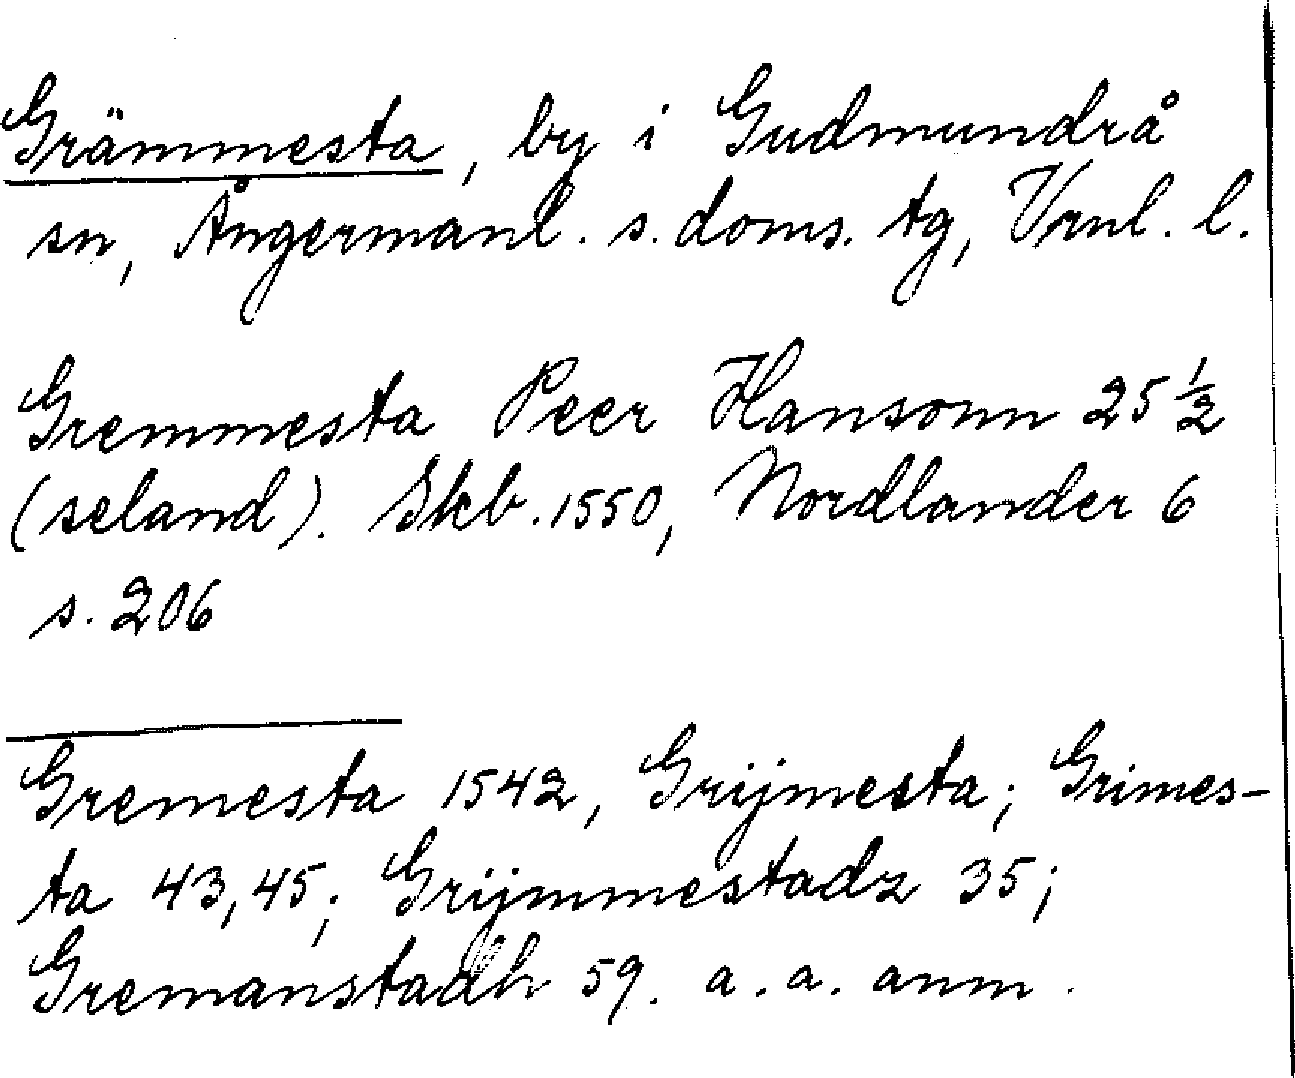 Grämmesta, by i Gudmundrå
sn, Ångermanl. s. doms. tg, Vrnl. l.
Gremmesta Peer Hansonn 25 ½
(seland). Skb. 1550, Nordlander 6
s. 206
Gremesta 1542, Grijmesta; Grimes-
ta 43,45; Grijmmestadz 35;
Gremanstadh 59. a. a. anm.